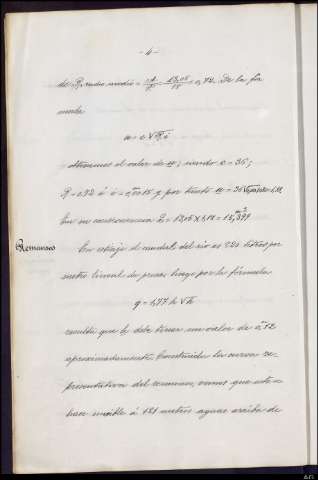 - 4 -
de R, radio medio = = 13,05 / 18 = 0,72. De la for
mula
u = c √R i
obtenemos el valor de u; siendo c = 36;
R = 0,72 é i = 0,0015 y por tanto u = 36
En su consecuencia Q = 13,05 × 1,18 = 15,399
Remanso En estiaje el caudal del rio es 220 litros por
metro lineal de presa: luego por la fórmula
q = 1,77 h √h
resulta que h debe tener un valor de 0,m12
aproximadamente. Construida la curva re-
presentativa del remanso, vemos que este se
hace sensible á 181 metros aguas arriba de